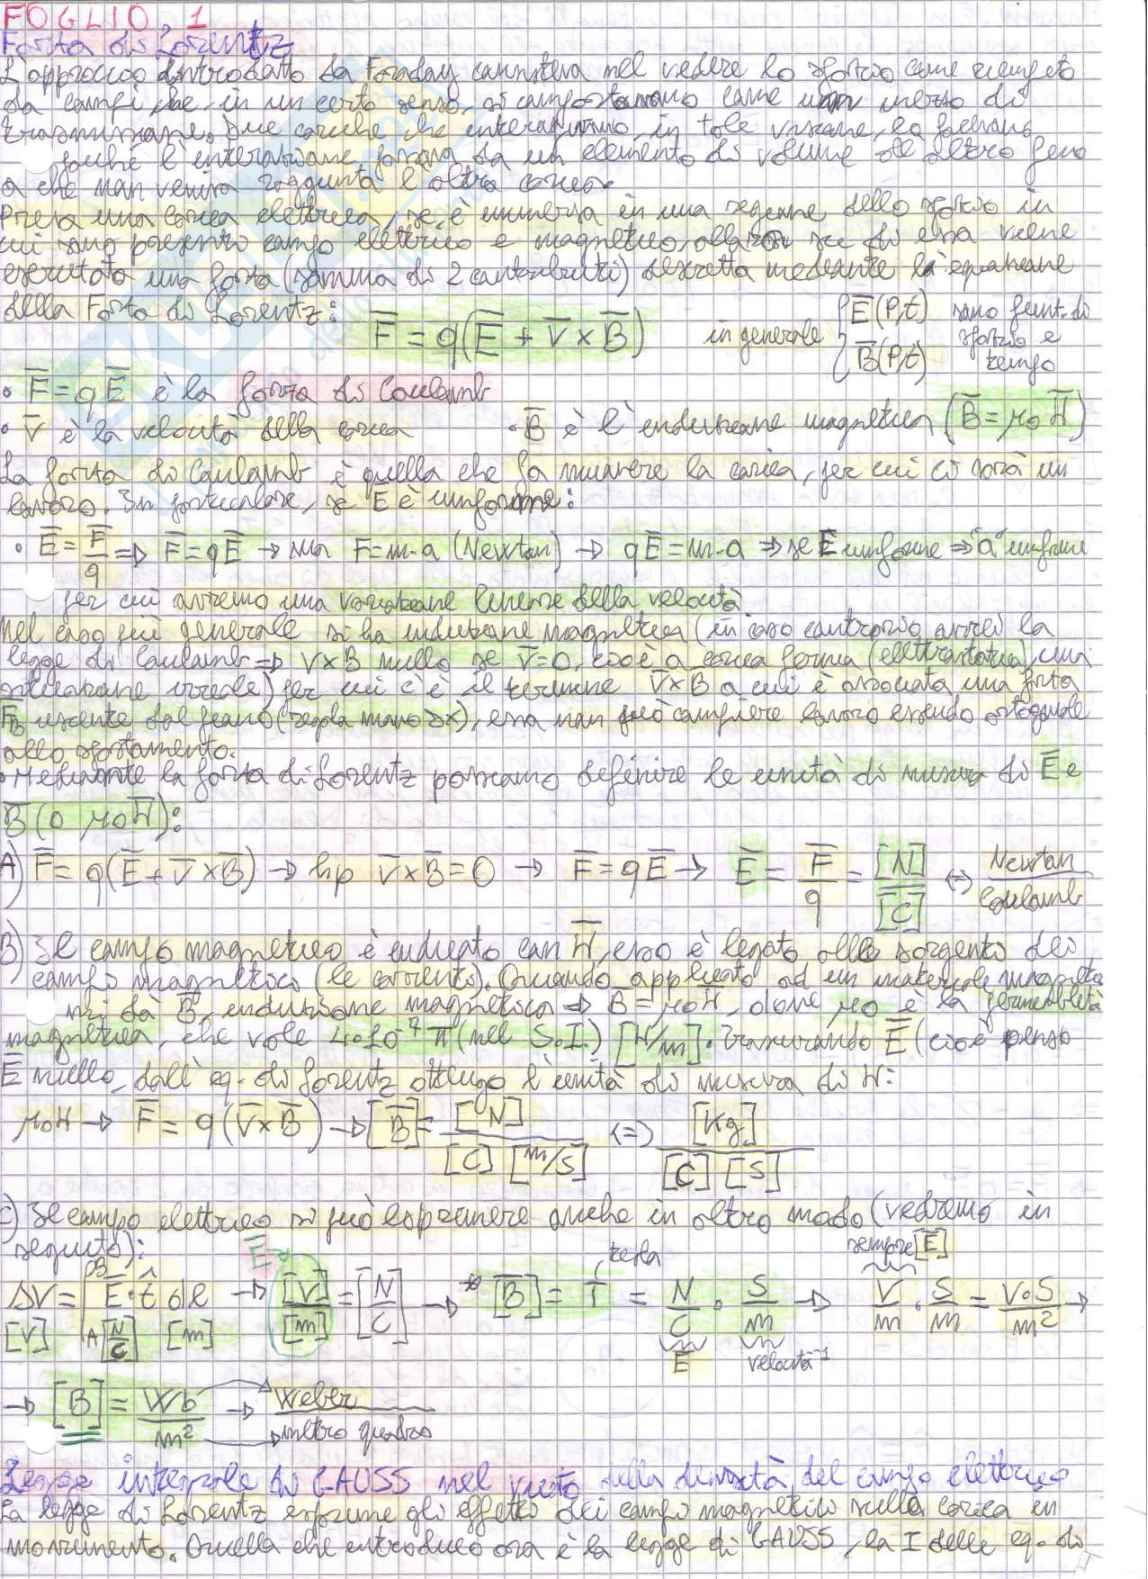 FOGLIO 1
Forza di Lorentz
L'approccio introdotto da Faraday consisteva nel vedere lo spazio come riempito
da campi che, in un certo senso, si comportavano come un mezzo di
trasmissione. Due cariche che interagivano, in tale visione, lo facevano
poiché l'interazione passava da un elemento di volume all'altro fino
a che non veniva raggiunta l'altra carica.
Presa una carica elettrica, se è immersa in una regione dello spazio in
cui sono presenti campo elettrico e magnetico, allora su di essa viene
esercitata una forza (somma di 2 contributi) descritta mediante l'equazione
della Forza di Lorentz: F̅ = q(E̅ + V̅ × B̅) in generale { E̅(P,t) B̅(P,t) sono funz. di spazio e tempo
• F̅ = qE̅ è la forza di Coulomb
• V̅ è la velocità della carica • B̅ è l'induzione magnetica (B̅ = μ₀H̅)
La forza di Coulomb è quella che fa muovere la carica, per cui ci sarà un
lavoro. In particolare, se E è uniforme:
• E̅ = F̅/q ⇒ F̅ = qE̅ → ma F = m·a (Newton) → qE̅ = m·a ⇒ se E uniforme ⇒ "a" uniforme
per cui avremo una variazione lineare della velocità
Nel caso più generale si ha induzione magnetica (in caso contrario avrei la
legge di Coulomb ⇒ V×B nullo se V̅=0, cioè a carica ferma (elettrostatica), una
situazione irreale) per cui c'è il termine V̅×B a cui è associata una forza
F_B uscente dal piano (regola mano dx), essa non può compiere lavoro essendo ortogonale
allo spostamento.
• Mediante la forza di Lorentz possiamo definire le unità di misura di E̅ e
B̅ (o μ₀H̅):
A) F̅ = q(E̅ + V̅ × B̅) → hp V̅ × B̅ = 0 → F̅ = qE̅ → E̅ = F̅/q = [N]/[C] ⇔ Newton/Coulomb
B) Il campo magnetico è indicato con H̅, esso è legato alle sorgenti dei
campi magnetici (le correnti). Quando applicato ad un materiale magnetico
mi dà B̅, induzione magnetica ⇒ B = μ₀H, dove μ₀ è la permeabilità
magnetica, che vale 4·10⁻⁷ π (nel S.I.) [H/m]. Trascurando E̅ (cioè penso
E̅ nullo, dall'eq. di Lorentz ottengo l'unità di misura di H:
μ₀H → F̅ = q(V̅×B̅) → [B̅] = [N]/[C][m/s] ⇔ [Kg]/[C][s]
C) Il campo elettrico si può esprimere anche in altro modo (vedremo in
seguito):
ΔV = ∫_A^B E̅·t̂ dl → E → [V]/[m] = [N]/[C] → * [B̅] = T = N/C · S/m → V/m · S/m = V·S/m² →
[V] [N/C] [m] tesla E̅ velocità⁻¹ sempre [E]
→ [B] = Wb/m² → Weber/metro quadro
Legge integrale di GAUSS nel vuoto sulla densità del campo elettrico
La legge di Lorentz esprime gli effetti dei campi magnetici sulla carica in
movimento. Quella che introduco ora è la legge di GAUSS, la I delle eq. di